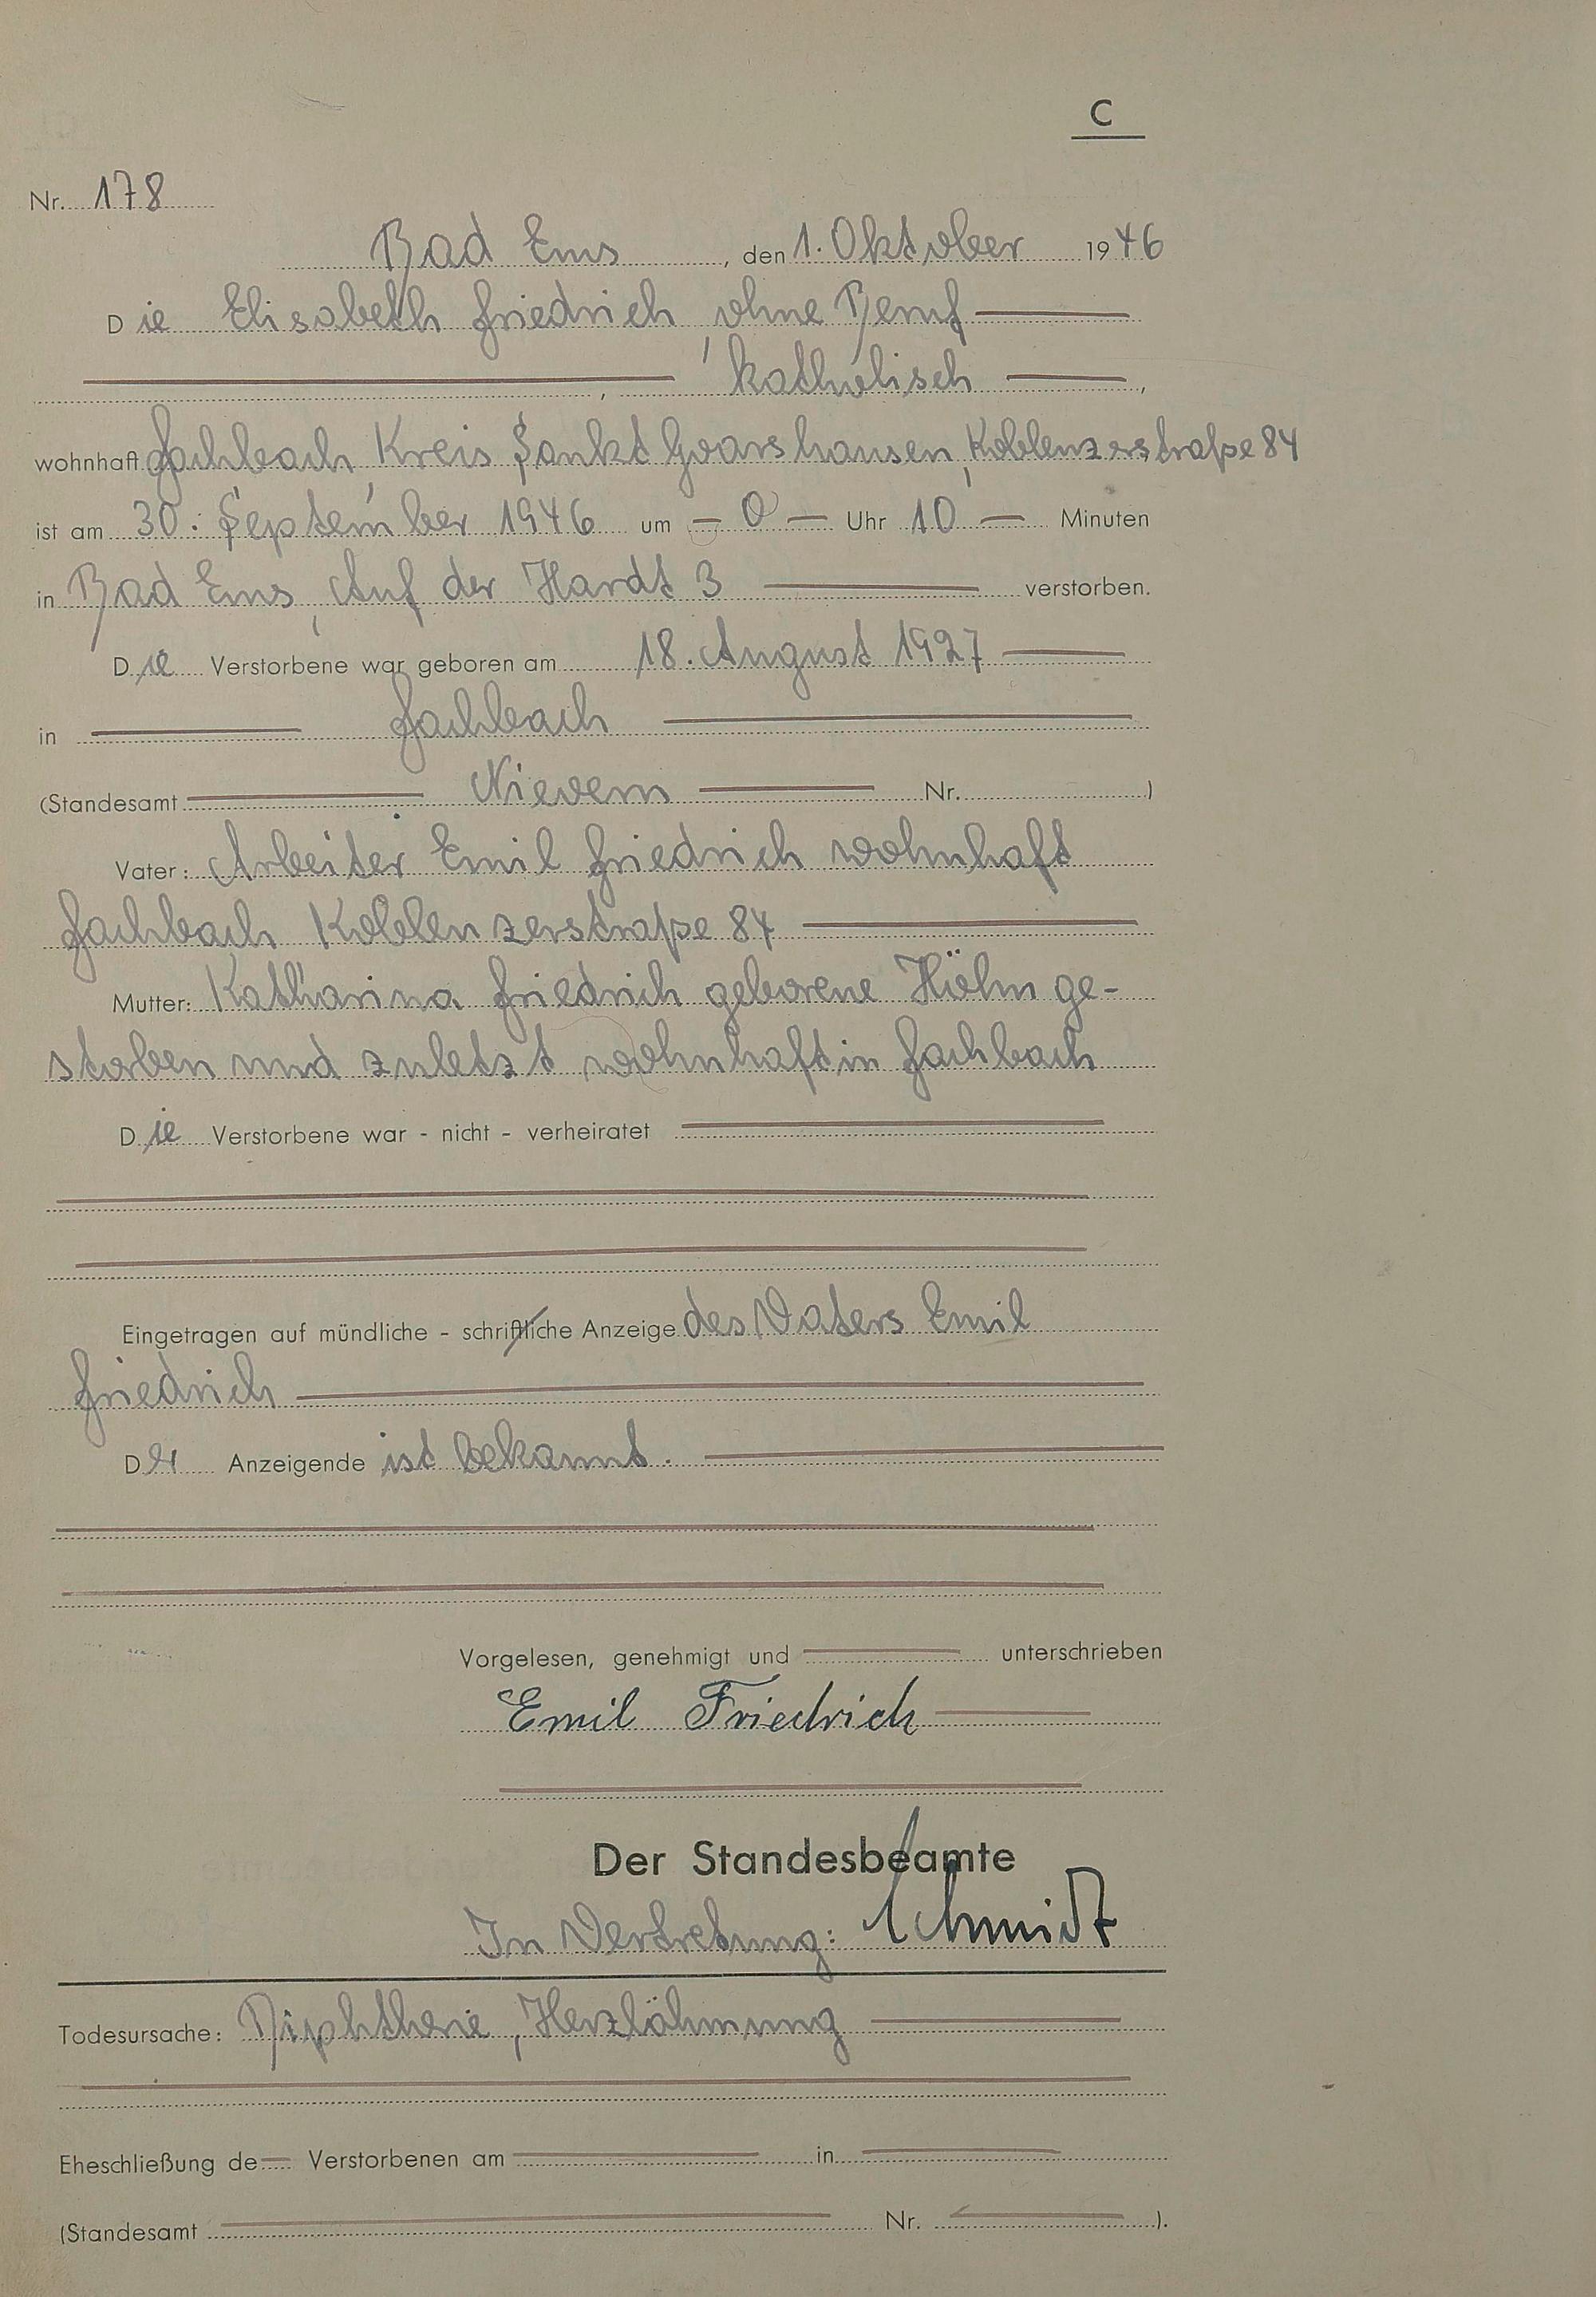 C
Nr. 178
Bad Ems, den 1. Oktober 1946
Die Elisabeth Friedrich, ohne Beruf
, katholisch ,
wohnhaft Fachbach, Kreis Sankt Goarshausen, Koblenzerstraße 84
ist am 30. September 1946 um — 0 — Uhr 10 — Minuten
in Bad Ems, Auf der Hardt 3 verstorben.
Die Verstorbene war geboren am 18. August 1927
in Fachbach
(Standesamt Nievern Nr. )
Vater: Arbeiter Emil Friedrich wohnhaft
Fachbach Koblenzerstraße 84
Mutter: Katharina Friedrich geborene Höhn ge-
storben und zuletzt wohnhaft in Fachbach
Die Verstorbene war - nicht - verheiratet
Eingetragen auf mündliche - schriftliche Anzeige des Vaters Emil
Friedrich
Der Anzeigende ist bekannt.
Vorgelesen, genehmigt und unterschrieben
Emil Friedrich
Der Standesbeamte
In Vertretung: Schmidt
Todesursache: Diphtherie, Herzlähmung
Eheschließung de— Verstorbenen am in
(Standesamt Nr. ).